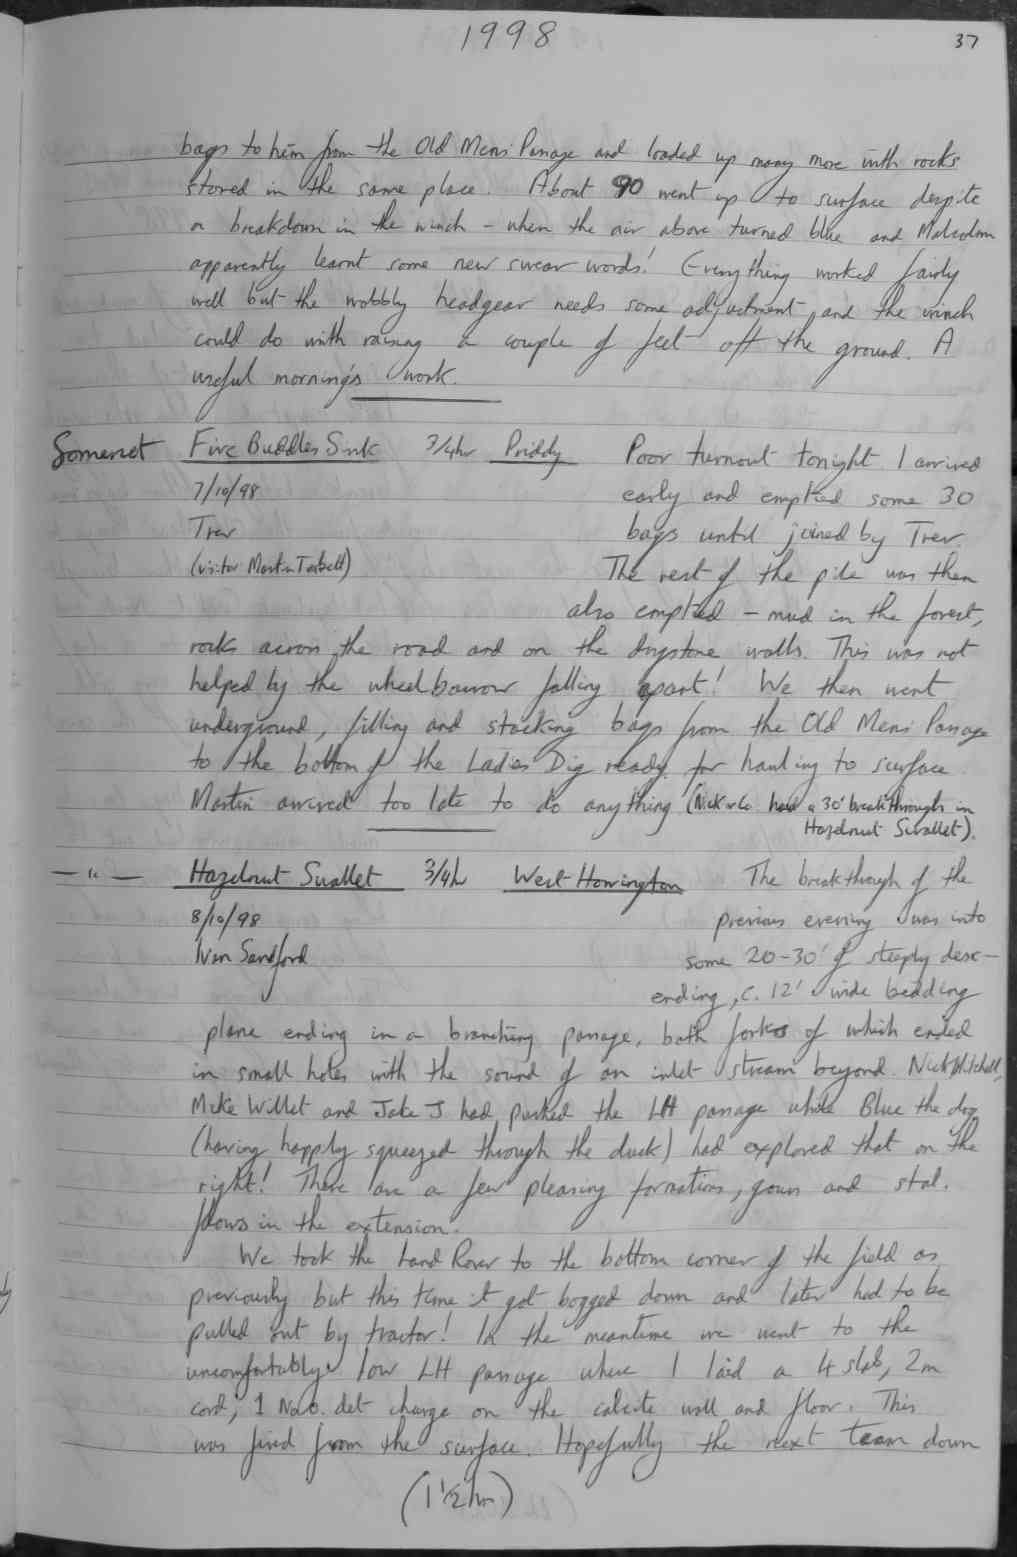 1998
37
bags to him from the Old Mens Passage and loaded up many more with rocks
stored in the same place. About 90 went up to surface despite
a breakdown in the winch - when the air above turned blue and Malcolm
apparently learnt some new swear words! Everything worked fairly
well but the wobbly headgear needs some adjustment, and the winch
could do with raising a couple of feet off the ground. A
useful mornings work.
Somerset Five Buddles Sink 3/4hr Priddy Poor turnout tonight. I arrived
7/10/98 early and emptied some 30
Trev bags until joined by Trev.
(visitor Martin Torbett) The rest of the pile was then
also emptied - mud in the forest,
rocks across the road and on the drystone walls. This was not
helped by the wheelbarrow falling apart! We then went
underground, filling and stacking bags from the Old Mens Passage
to the bottom of the Ladies Dig ready for hauling to surface.
Martin arrived too late to do anything (Nick & Co. had a 30' breakthrough in
Hazelnut Swallet).
—"— Hazelnut Swallet 3/4hr West Horrington The breakthrough of the
8/10/98 previous evening was into
Ivan Sandford some 20-30' of steeply desc-
ending, c. 12' wide bedding
plane ending in a branching passage, both forks of which ended
in small holes with the sound of an inlet stream beyond. Nick Mitchell,
Mike Willet and Jake J had pushed the LH passage while Blue the dog
(having happily squeezed through the duck) had explored that on the
right! There are a few pleasing formations, gours and stal.
flows in the extension.
We took the Land Rover to the bottom corner of the field as
previously but this time it got bogged down and later had to be
pulled out by tractor! In the meantime we went to the
uncomfortably low LH passage where I laid a 4 slab, 2m
cord, 1 No.6. det charge on the calcite wall and floor. This
was fired from the surface. Hopefully the next team down
(1 1/2 hr)